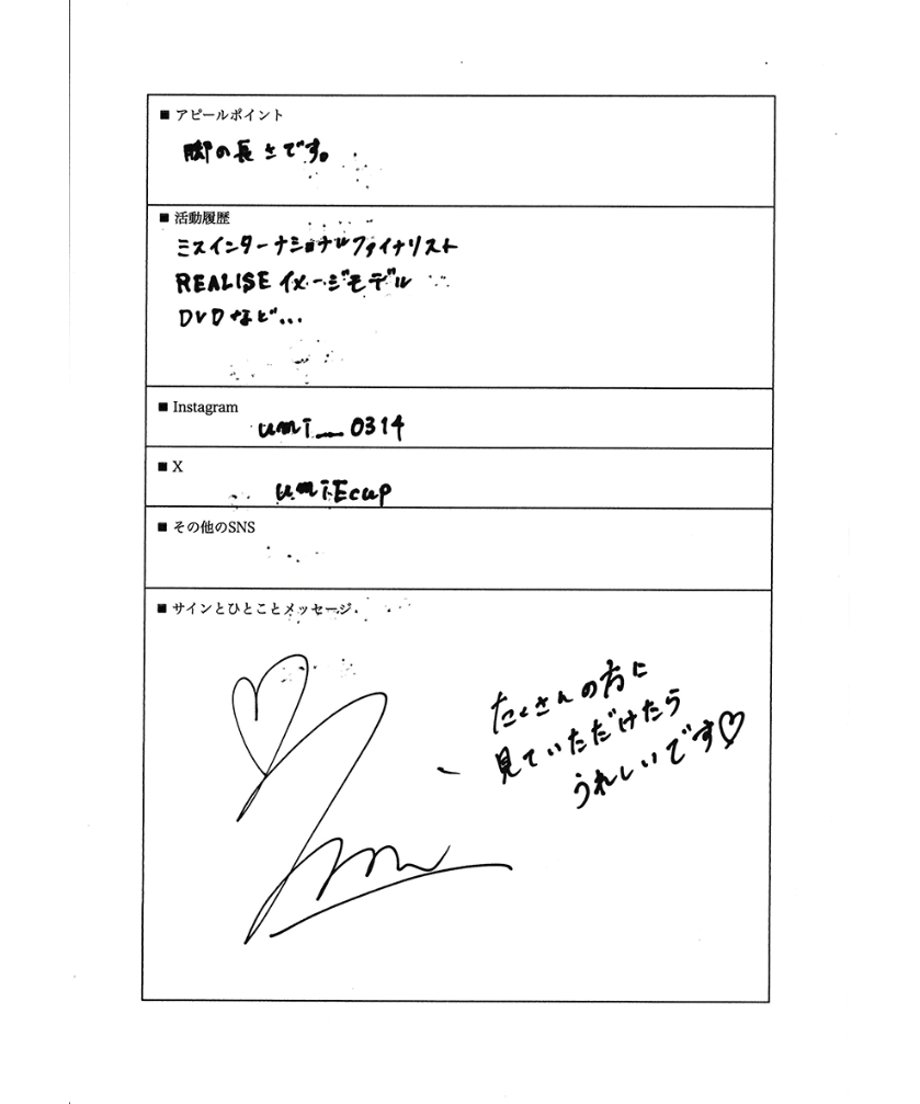 ■ アピールポイント
脚の長さです。
■ 活動履歴
ミスインターナショナルファイナリスト
REALISE イメージモデル
DVDなど...
■ Instagram
umi__0314
■ X
umiEcup
■ その他のSNS
■ サインとひとことメッセージ
たくさんの方に
見ていただけたら
うれしいです♡